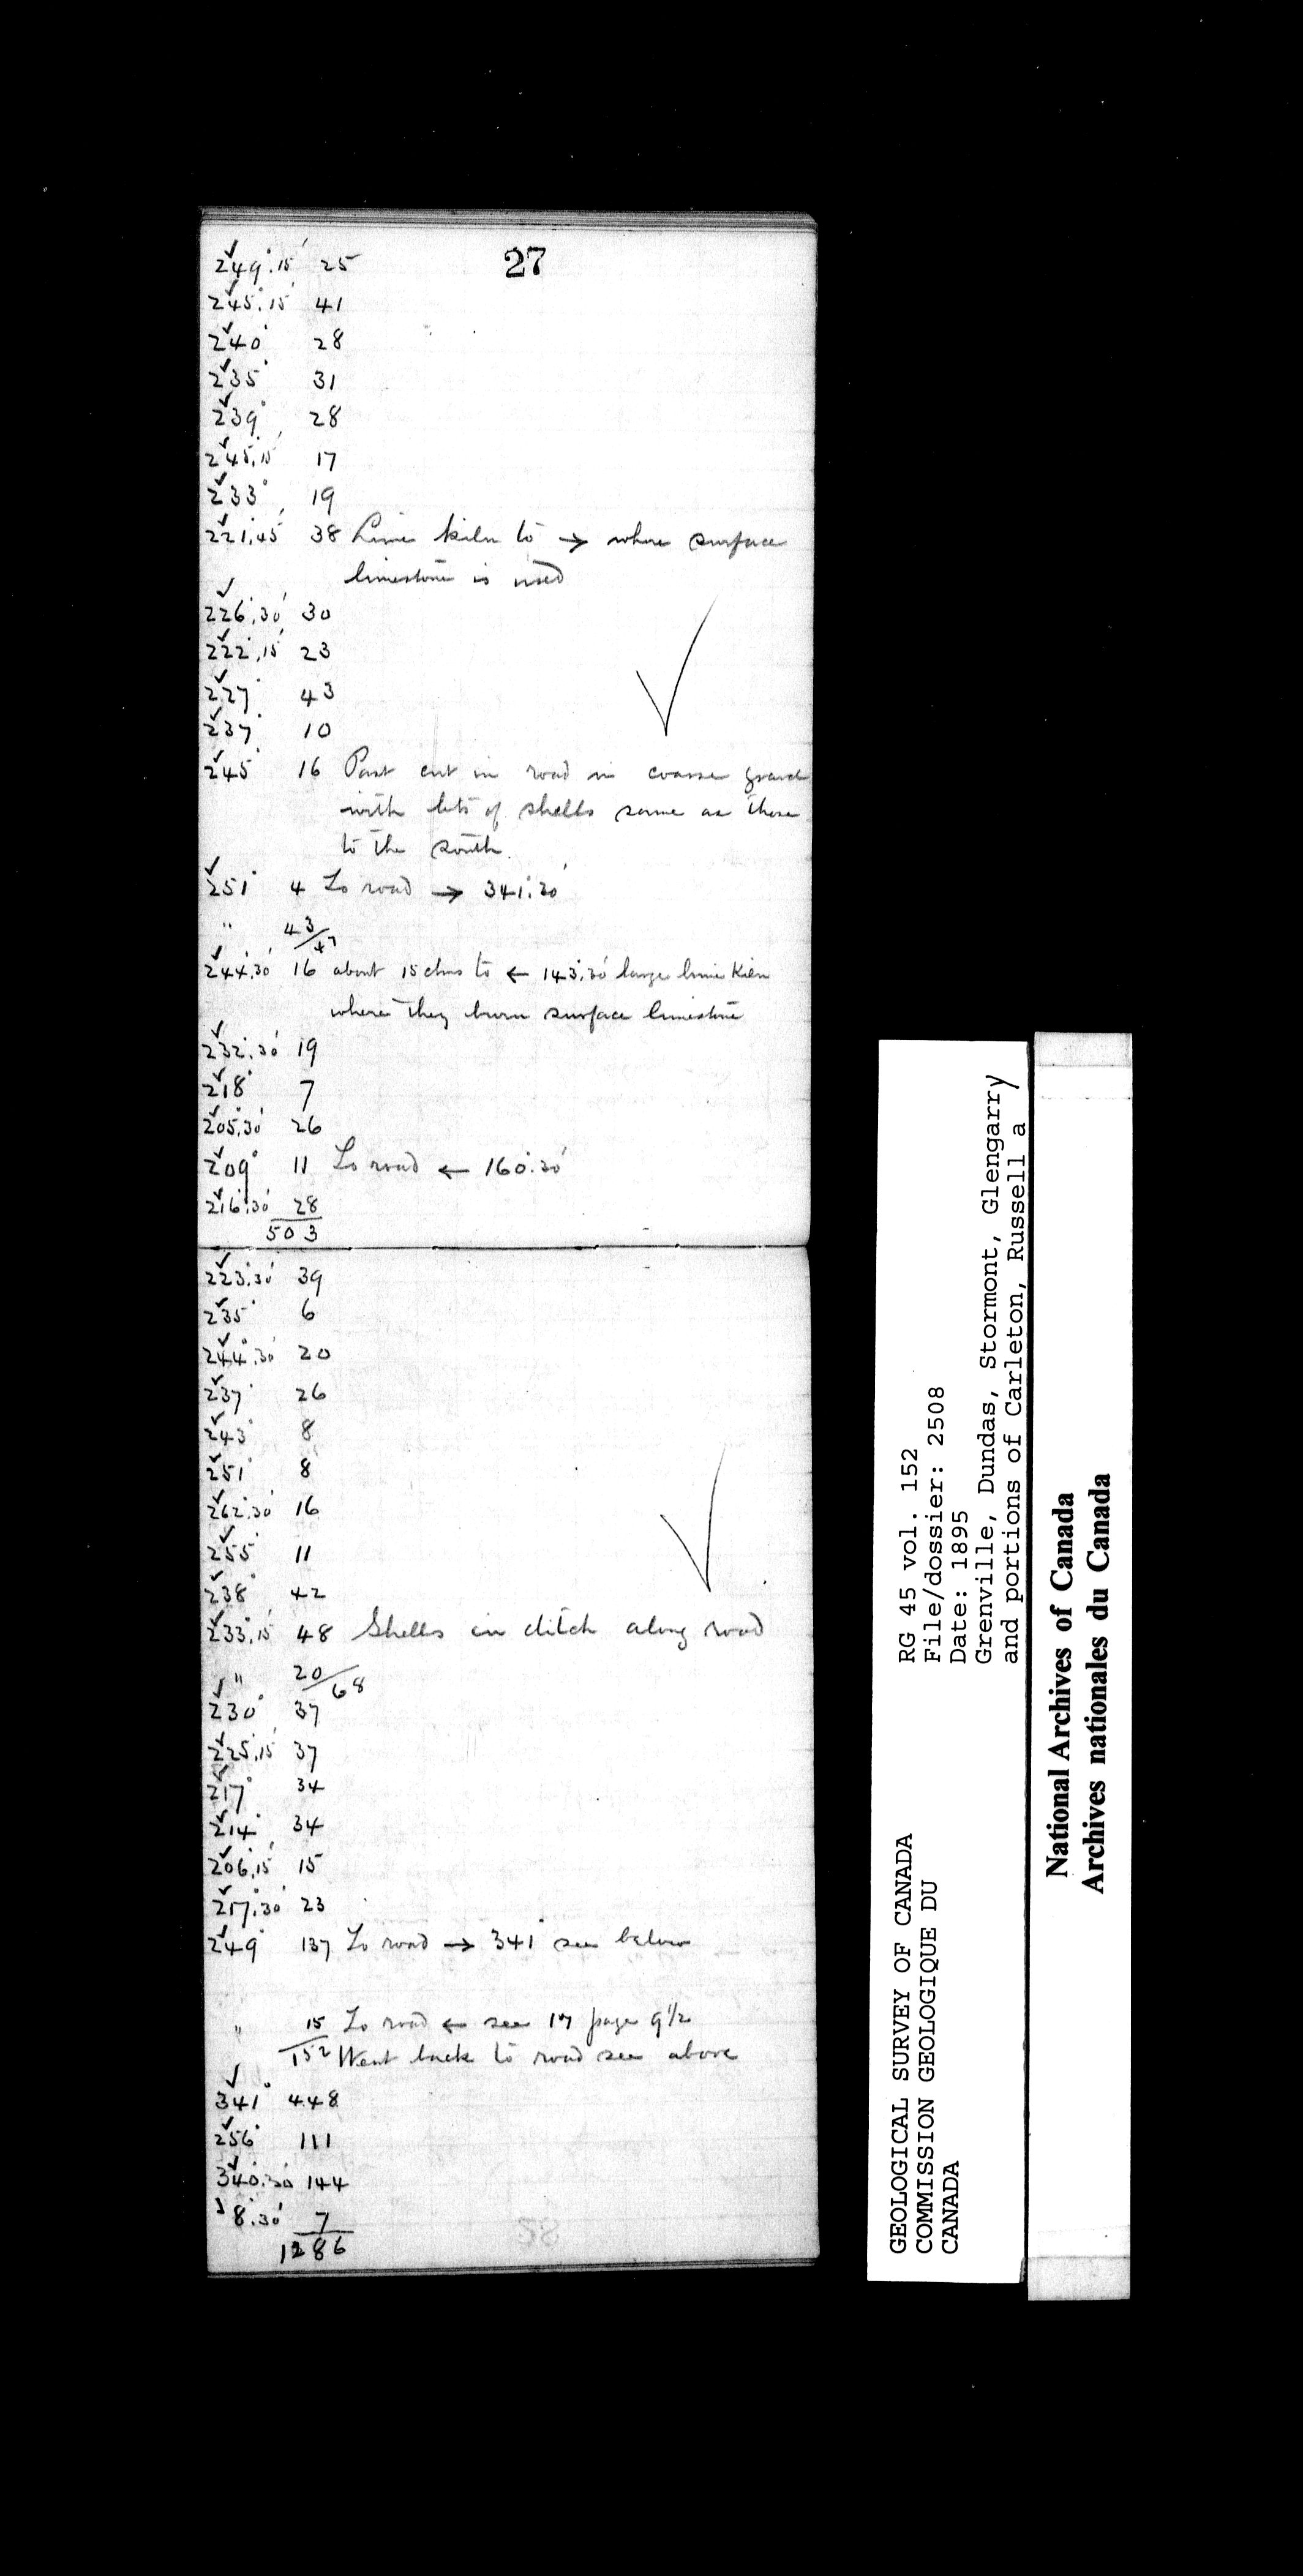 27
249°.15' 25
245°.15' 41
240° 28
235° 31
239° 28
245°.15' 17
233° 19
221°.45' 38 Lime kiln to → where surface
limestone is used
226°.30' 30
222°.15' 23
227° 43
237° 10
245° 16 Past cut in road in coarse gravel
with lots of shells same as those
to the south.
251° 4 To road → 341°.30'
" 43/47
244°.30' 16 about 15 chns to ← 143°.30' large lime kiln
where they burn surface limestone
232°.30' 19
218° 7
205°.30' 26
209° 11 To road ← 160°.30'
216°.30' 28
503
223°.30' 39
235° 6
244°.30' 20
237° 26
243° 8
251° 8
262°.30' 16
255° 11
238° 42
233°.15' 48 Shells in ditch along road
" 20/68
230° 37
225°.15' 37
217° 34
214° 34
206°.15' 15
217°.30' 23
249° 137 To road → 341° see below
" 15 To road ← see 17 page 9 1/2
152 Went back to road see above
341° 448
256° 111
340°.30' 144
8°.30' 7
1286
GEOLOGICAL SURVEY OF CANADA
COMMISSION GEOLOGIQUE DU
CANADA
RG 45 vol. 152
File/dossier: 2508
Date: 1895
Grenville, Dundas, Stormont, Glengarry
and portions of Carleton, Russell a
National Archives of Canada
Archives nationales du Canada